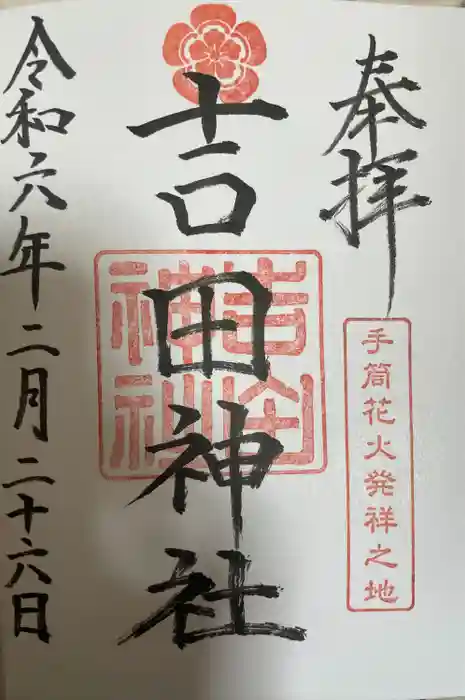 奉拝
手筒花火発祥之地
吉田神社
吉田神社
令和六年二月二十六日